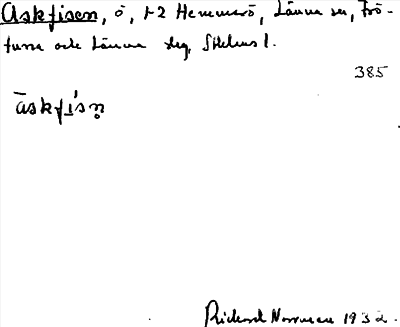 Askfisen, ö, 1-2 Hemmarö, Länna sn, Frö-
tuna och Länna skg, Sthlms l.
385
āskfı̄́sn̥
Richard Norrman 1932.